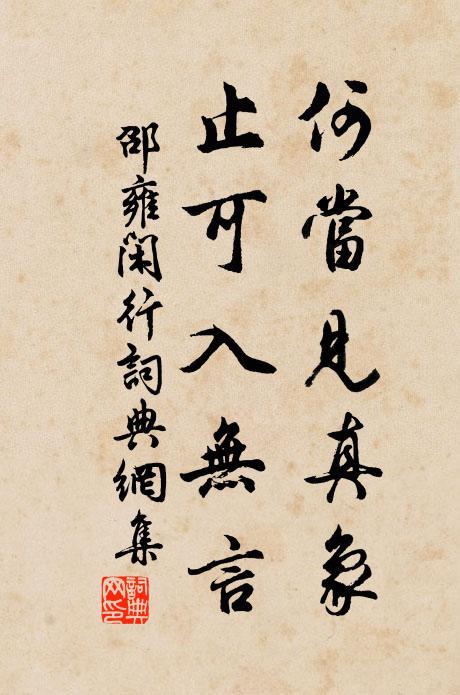 何當見真象
止可入無言
邵雍閑行詞典網集
詞典網印